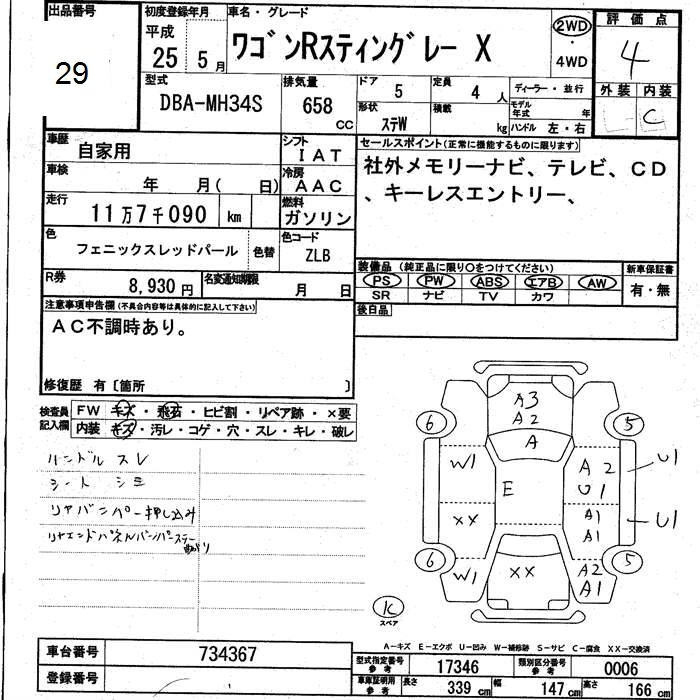 出品番号
29
初度登録年月
平成
25 5月
車名・グレード
ワゴンRスティングレー X
2WD
・
4WD
評価点
4
外装 内装
C
型式
DBA-MH34S
排気量
658
CC
ドア 5
定員 4 人
形状 ステW
積載 kg
ディーラー・並行
モデル年式 年
ハンドル 左・右
車歴
自家用
シフト
IAT
車検
年 月( 日)
冷房
AAC
走行
11万7千090 km
燃料
ガソリン
色
フェニックスレッドパール
色替
色コード
ZLB
R券
8,930円
名変通知期限
月 日
セールスポイント(正常に機能するものに限ります)
社外メモリーナビ、テレビ、CD
、キーレスエントリー、
装備品 (純正品に限り○をつけてください)
新車保証書
PS PW ABS エアB AW
SR ナビ TV カワ
有・無
後日品
注意事項申告欄(不具合内容等は具体的に記入して下さい)
AC不調時あり。
修復歴 有〔箇所 〕
検査員
記入欄
FW キズ・飛石・ヒビ割・リペア跡・×要
内装 キズ・汚レ・コゲ・穴・スレ・キレ・破レ
ハンドルスレ
シートシミ
リヤバンパー押し込み
リヤエンドパネルバンパーステー
曲がり
A3
A2
A
6
5
W1
A2
U1
U1
E
XX
A1
A1
U1
6
5
W1
XX
A2
A1
スペア
A－キズ E－エクボ U－凹み W－補修跡 S－サビ C－腐食 XX－交換済
車台番号
734367
登録番号
型式指定番号
参考
17346
類別区分番号
参考
0006
車庫証明用
参考
長さ 339 cm
幅 147 cm
高さ 166 cm